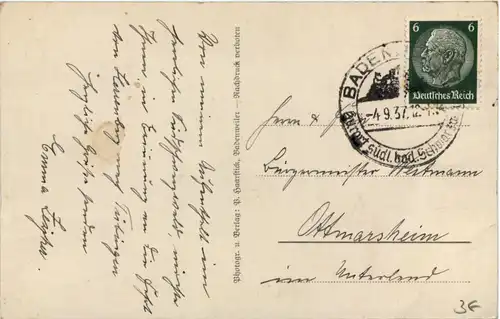 Von meinem Aufenthalt im
herrlichen Südschwarzwald, möchte
Ihnen in Erinnerung an die Fahrt
von Herrenberg nach Tübingen
herzliche Grüße senden
Emma
Photogr. u. Verlag: P. Hauerstein, Badenweiler — Nachdruck verboten
6 6
Deutsches Reich
BADEN
-4.9.37.
südl. bad. Schwarzw.
Herrn &
Bürgermeister Weitmann
Ottmarsheim
im Unterland
3€